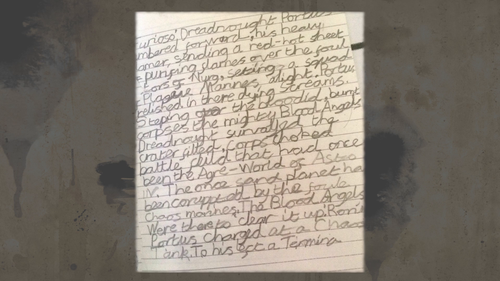 Furioso Dreadnought Portus
forward, his heavy
sending a red-hot sheet
purifying flashes over the foul
of Nurg, setting a squad
Plague Marines alight. Portus
in there dying streams.
Steping over the bloodid, burnt
corpses the mighty Blood Angels
Dreadnought survailled the
crater filled, corps choked
battle feild that had once
been the Agre-World of Astro
IV. The once sand planet had
been corupted by the foule
Chaos marines. The Blood Angels
were there to clear it up.
Portus charged at a Chaos
Tank. To his left a Termina